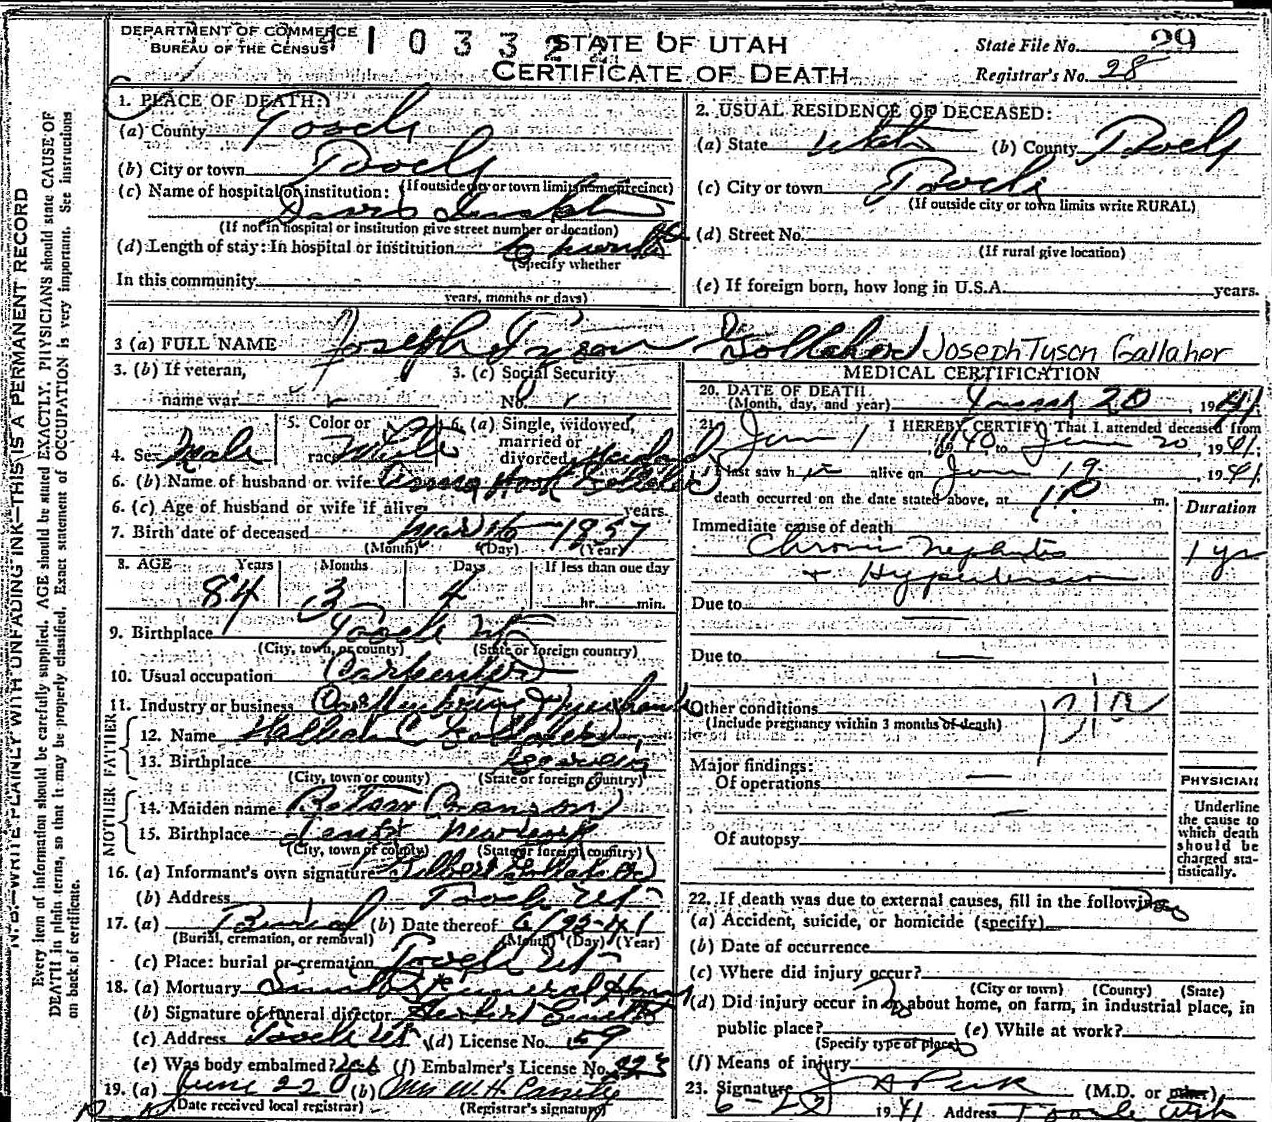 DEPARTMENT OF COMMERCE
BUREAU OF THE CENSUS
1 0 3 3 2
STATE OF UTAH
CERTIFICATE OF DEATH
State File No. 29
Registrar's No. 28
N. B.—WRITE PLAINLY WITH UNFADING INK—THIS IS A PERMANENT RECORD
Every item of information should be carefully supplied. AGE should be stated EXACTLY. PHYSICIANS should state CAUSE OF
DEATH in plain terms, so that it may be properly classified. Exact statement of OCCUPATION is very important. See instructions
on back of certificate.
1. PLACE OF DEATH:
(a) County Tooele
(b) City or town Tooele
(If outside city or town limits name precinct)
(c) Name of hospital or institution:
(If not in hospital or institution give street number or location)
(d) Length of stay: In hospital or institution 6 months
(Specify whether
In this community
years, months or days)
2. USUAL RESIDENCE OF DECEASED:
(a) State Utah (b) County Tooele
(c) City or town Tooele
(If outside city or town limits write RURAL)
(d) Street No.
(If rural give location)
(e) If foreign born, how long in U.S.A. years.
3 (a) FULL NAME Joseph Tyson Gollaher Joseph Tyson Gallaher
3. (b) If veteran,
name war
3. (c) Social Security
No.
4. Sex Male
5. Color or
race White
6. (a) Single, widowed,
married or
divorced
6. (b) Name of husband or wife
6. (c) Age of husband or wife if alive years.
7. Birth date of deceased Mar 16 1857
(Month) (Day) (Year)
8. AGE Years Months Days If less than one day
84 3 4 hr. min.
9. Birthplace Tooele Ut
(City, town, or county) (State or foreign country)
10. Usual occupation Carpenter
11. Industry or business
FATHER
12. Name Gollaher
13. Birthplace
(City, town or county) (State or foreign country)
MOTHER
14. Maiden name Betsy
15. Birthplace New York
(City, town or county) (State or foreign country)
16. (a) Informant's own signature Gilbert Gollaher
(b) Address Tooele Ut
17. (a) Burial (b) Date thereof 6/23-41
(Burial, cremation, or removal) (Month) (Day) (Year)
(c) Place: burial or cremation Tooele Ut
18. (a) Mortuary Funeral Home
(b) Signature of funeral director Herbert
(c) Address Tooele Ut (d) License No. 59
(e) Was body embalmed? Yes (f) Embalmer's License No. 323
19. (a) June 22 (b) Mrs W.H.
(Date received local registrar) (Registrar's signature)
MEDICAL CERTIFICATION
20. DATE OF DEATH
(Month, day, and year) June 20, 1941
21. I HEREBY CERTIFY That I attended deceased from
June 1 1940 to June 20, 1941.
I last saw h alive on June 19 1941
death occurred on the date stated above, at m.
Duration
Immediate cause of death
Chronic Nephritis 1 yr
+ Hypertension
Due to
Due to
Other conditions
(Include pregnancy within 3 months of death)
Major findings:
Of operations
Of autopsy
PHYSICIAN
Underline
the cause to
which death
should be
charged sta-
tistically.
22. If death was due to external causes, fill in the following:
(a) Accident, suicide, or homicide (specify)
(b) Date of occurrence
(c) Where did injury occur?
(City or town) (County) (State)
(d) Did injury occur in or about home, on farm, in industrial place, in
public place? (e) While at work?
(Specify type of place)
(f) Means of injury
23. Signature J A Peck (M.D. or other)
6-22 1941 Address Tooele Utah